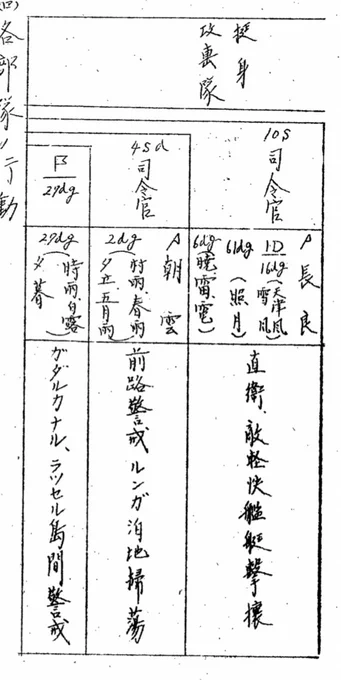 (ロ)
各部隊ノ行動
挺身
攻裏隊
10S
司令官
4Sd
司令官
B
27dg
A 長良
1D
16dg (天津風
雪風)
61dg (照月)
6dg (暁雷電)
A 朝雲
2dg (村雨、春雨
夕立、五月雨)
27dg (時雨、白露
夕暮)
直衛、敵軽快艦艇撃攘
前路警戒 ルンガ泊地掃蕩
ガダルカナル、ラツセル島間警戒